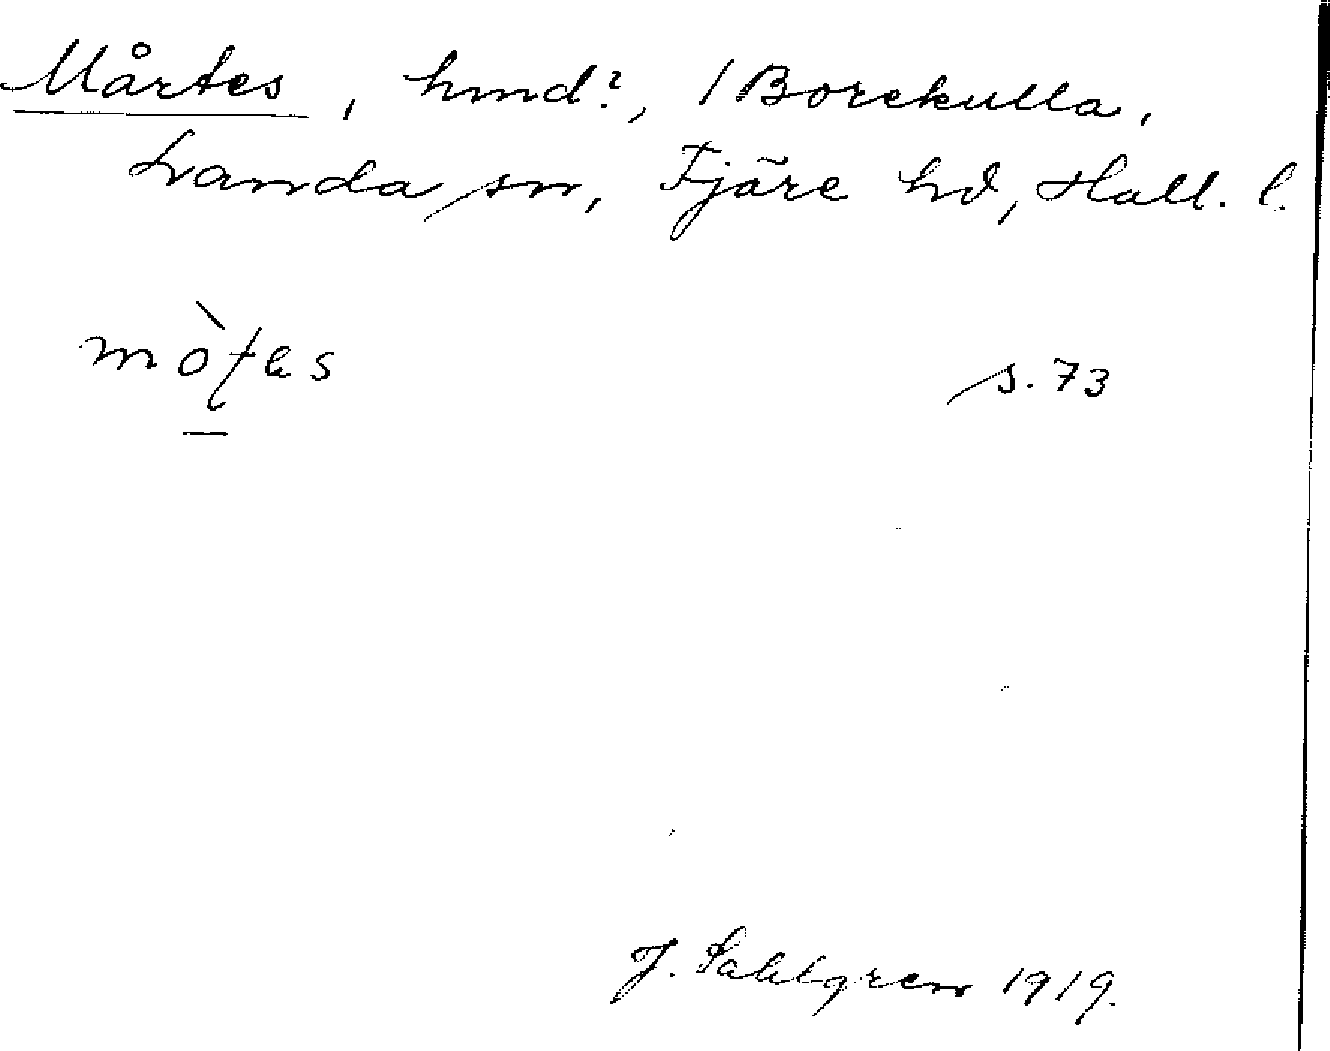 Mårtes, hmd?, / Borekulla,
Landa sn, Fjäre hd, Hall. l.
s. 73
J. Sahlgren 1919.